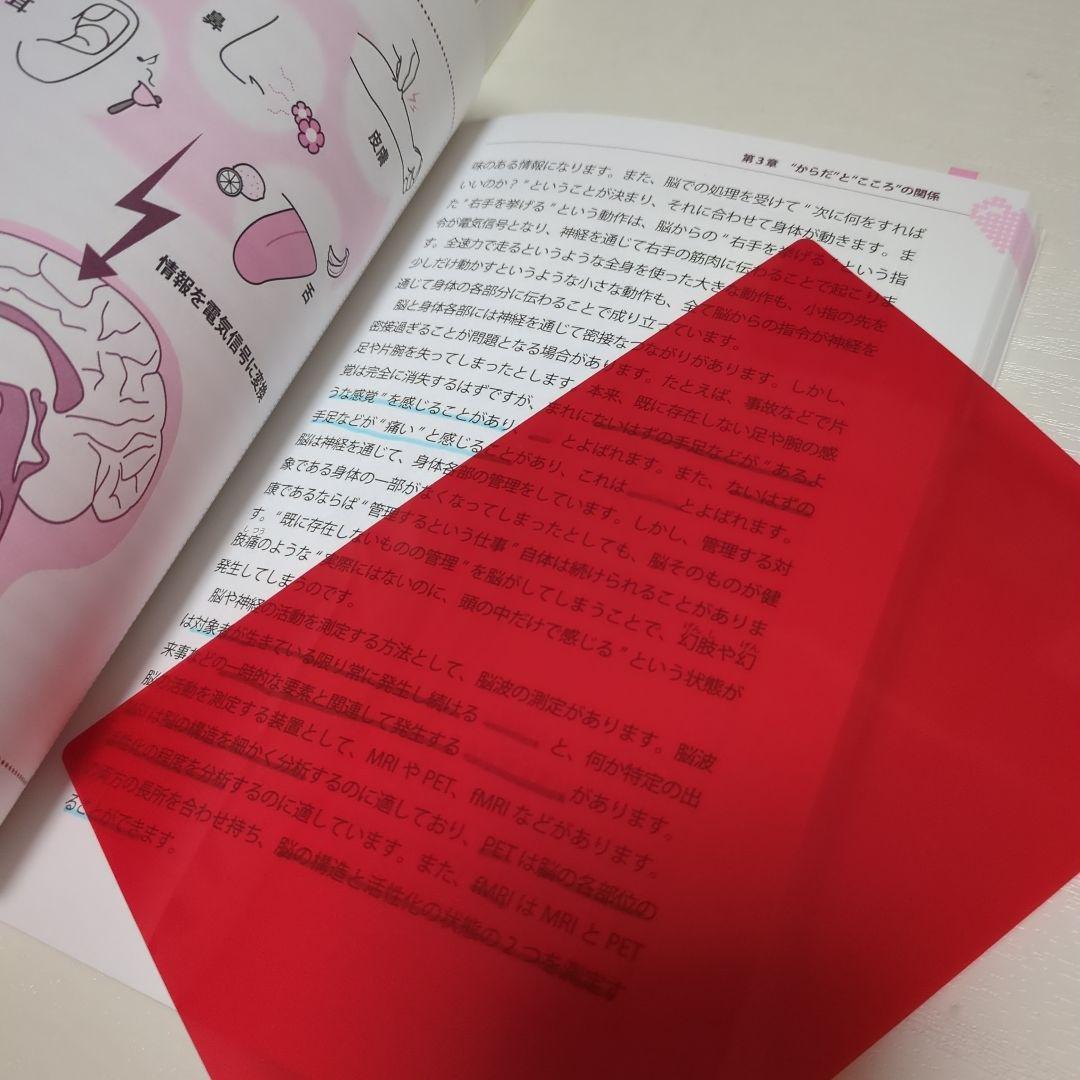 耳
鼻
皮膚
舌
情報を電気信号に変換
第3章 “からだ”と“こころ”の関係
味のある情報になります。また、脳での処理を受けて“次に何をすれば
いいのか？”ということが決まり、それに合わせて身体が動きます。ま
た“右手を挙げる”という動作は、脳からの“右手を挙げる”という指
令が電気信号となり、神経を通じて右手の筋肉に伝わることで起こりま
す。全速力で走るというような全身を使った大きな動作も、小指の先を
少しだけ動かすというような小さな動作も、全て脳からの指令が神経を
通じて身体の各部分に伝わることで成り立っています。
脳と身体各部には神経を通じて密接なつながりがあります。しかし、
密接過ぎることが問題となる場合があります。たとえば、事故などで片
足や片腕を失ってしまったとします。本来、既に存在しない足や腕の感
覚は完全に消失するはずですが、まれにないはずの手足などが“あるよ
うな感覚”を感じることがあり とよばれます。また、ないはずの
手足などが“痛い”と感じることがあり、これは とよばれます。
脳は神経を通じて、身体各部の管理をしています。しかし、管理する対
象である身体の一部がなくなってしまったとしても、脳そのものが健
康であるならば“管理するという仕事”自体は続けられることがありま
す。“既に存在しないものの管理”を脳がしてしまうことで、幻肢や幻
肢痛のような“実際にはないのに、頭の中だけで感じる”という状態が
発生してしまうのです。
脳や神経の活動を測定する方法として、脳波の測定があります。脳波
は対象者が生きている限り常に発生し続ける と、何か特定の出
来事などの一時的な要素と関連して発生する があります。
脳の活動を測定する装置として、MRIやPET、fMRIなどがあります。
は脳の構造を細かく分析するのに適しており、PETは脳の各部位の
化の程度を分析するのに適しています。また、fMRIはMRIとPET
両方の長所を合わせ持ち、脳の構造と活性化の状態の2つを測定す
ることができます。